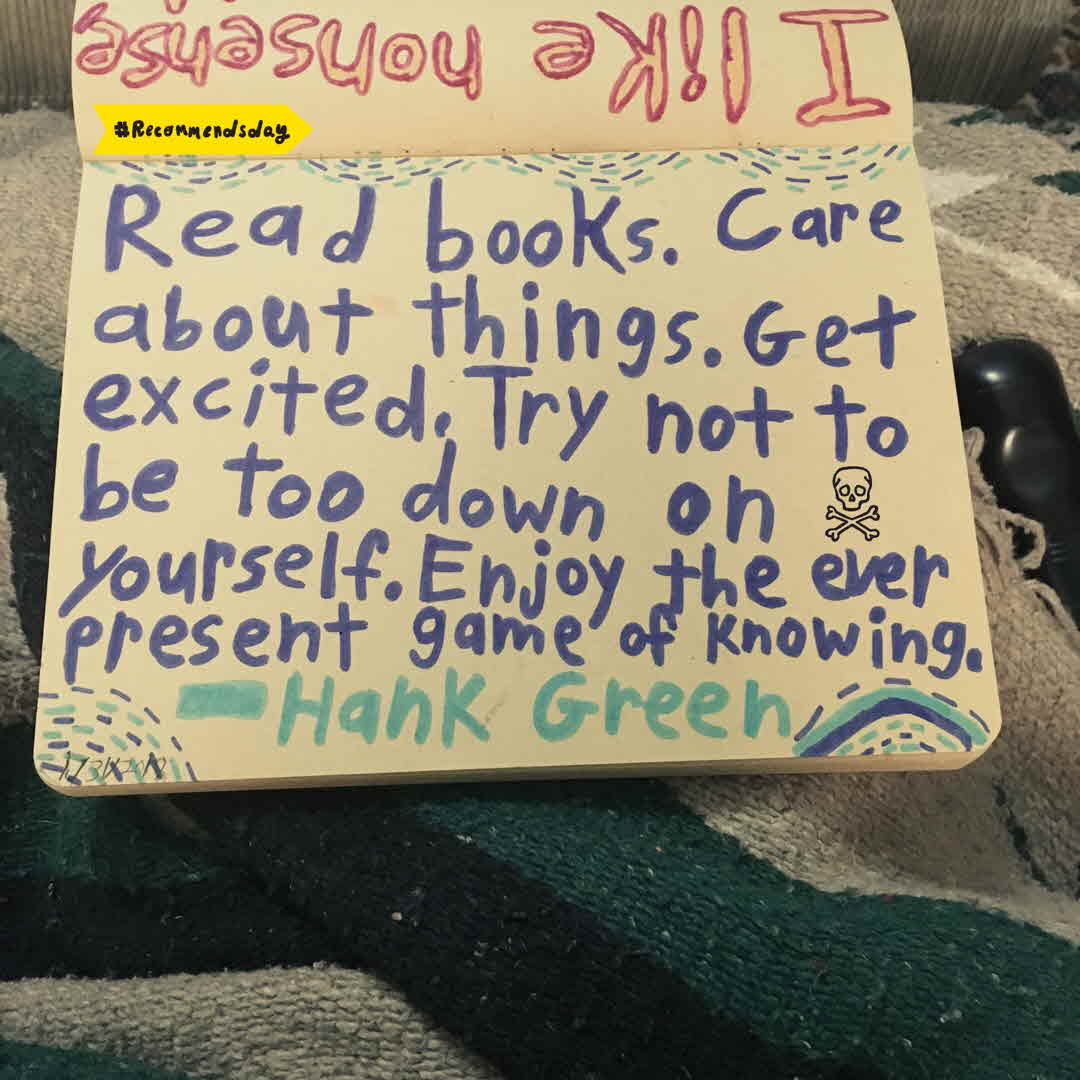 I like
nonsense
#Recommendsday
Read books. Care
about things. Get
excited. Try not to
be too down on
yourself. Enjoy the ever
present game of knowing.
—Hank Green